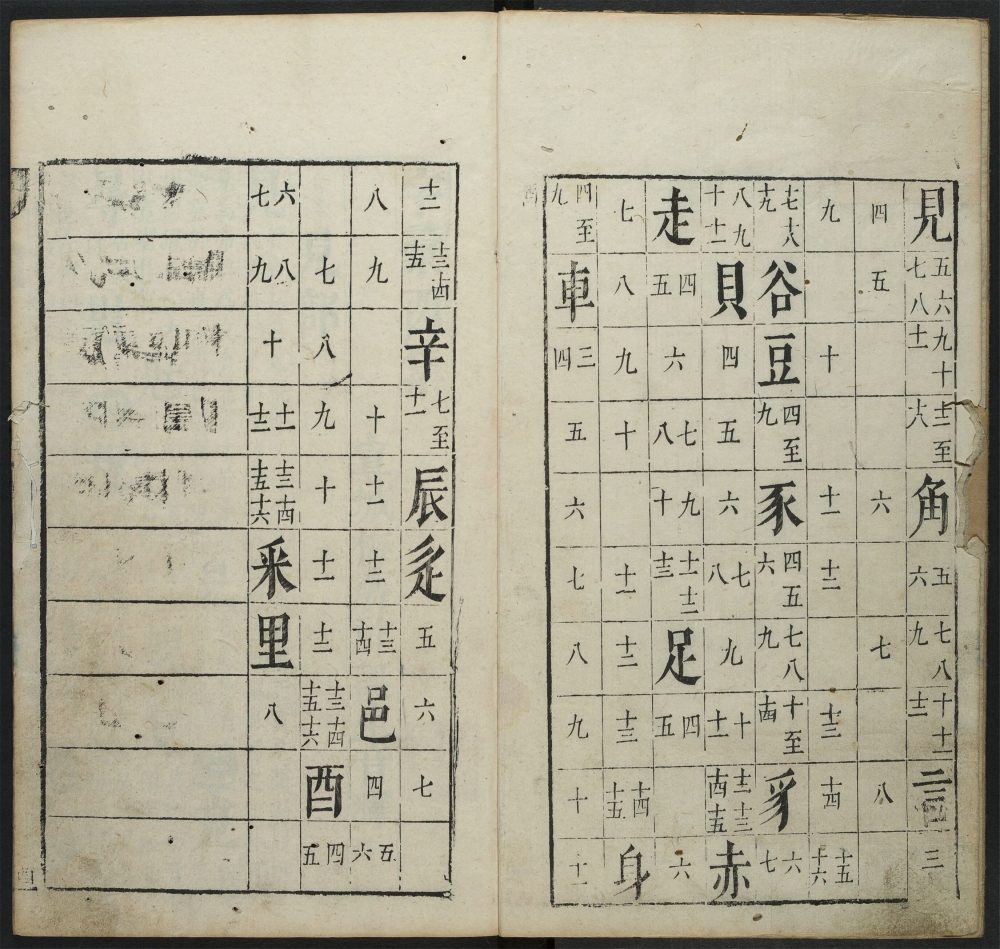 見 五六七八 九十十一 十二至十六 角 五六 七八九 十十一十二 言 三
四 五 六 七 八
九 十 十一 十二 十三 十四 十五十六
十七十八十九 谷 豆 四至九 豕 四五六 七八九 十至十四 豸 六七
八九十十一 貝 四 五 六 七八 九 十十一 十二十三十四十五 赤
走 四五 六 七八 九十 十一十二十三 足 四五 六
七 八 九 十 十一 十二 十三 十四十五 身
四至九 車 三四 五 六 七 八 九 十 十一
十二 十三十四十五 辛 七至十一 辰 辵 五 六 七
八 九 十 十一 十二 十三十四 邑 四 五六
七 八 九 十 十一 十二 十三十四十五十六 酉 四五
六七 八九 十 十一十二 十三十四十五十六 釆 里 八